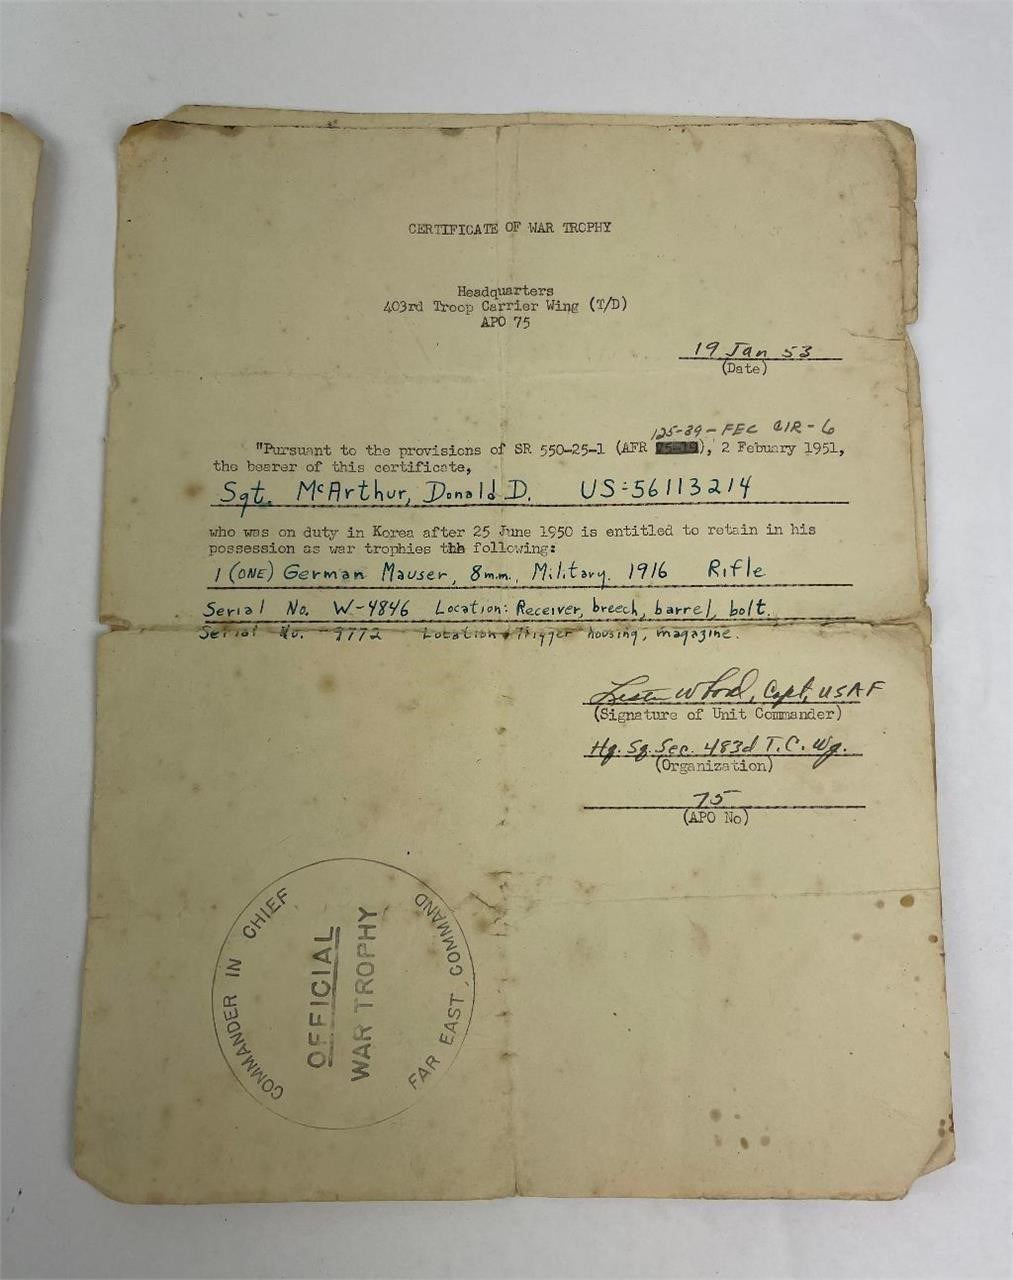 CERTIFICATE OF WAR TROPHY
Headquarters
403rd Troop Carrier Wing (T/D)
APO 75
19 Jan 53
(Date)
125-39-FEC CIR-6
"Pursuant to the provisions of SR 550-25-1 (AFR ), 2 Febuary 1951,
the bearer of this certificate,
Sgt. McArthur, Donald D. US=56113214
who was on duty in Korea after 25 June 1950 is entitled to retain in his
possession as war trophies the following:
1 (ONE) German Mauser, 8mm, Military. 1916 Rifle
Serial No. W-4846 Location: Receiver, breech, barrel, bolt.
Serial No. - 9772 Location: Trigger housing, magazine.
Capt, USAF
(Signature of Unit Commander)
Hq. Sq. Sec. 483d T.C. Wg.
(Organization)
75
(APO No)
COMMANDER IN CHIEF
OFFICIAL
WAR TROPHY
FAR EAST COMMAND